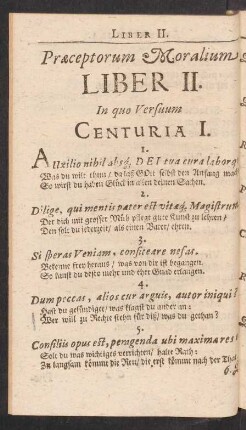 LIBER II.
Præceptorum Moralium
LIBER II.
In quo Versuum
CENTURIA I.
1.
AUxilio nihil absq; DEI tua cura laborq;
Was du wilt thun / da laß GOtt selbst den Anfang mach
So wirst du haben Glück in allen deinen Sachen.
2.
Dilige, qui mentis pater est vitæq; Magistrum
Der dich mit grosser Müh pflegt gute Kunst zu lehren /
Den solt du jederzeit / als einen Vater / ehren.
3.
Si speras Veniam, confiteare nefas.
Bekenne frey heraus / was von dir ist begangen.
So kanst du desto mehr und ehe Gnad erlangen.
4.
Dum peccas, alios cur arguis, autor iniqui?
Hast du gesündiget / was klagst du ander an:
Wer will zu Rechte stehn für diß / was du gethan?
5.
Consiliis opus est, peragenda ubi maxima res
Solt du was wichtiges verrichten / halte Rath:
Zu langsam kömmt die Reu / die erst kömmt nach der That
6.